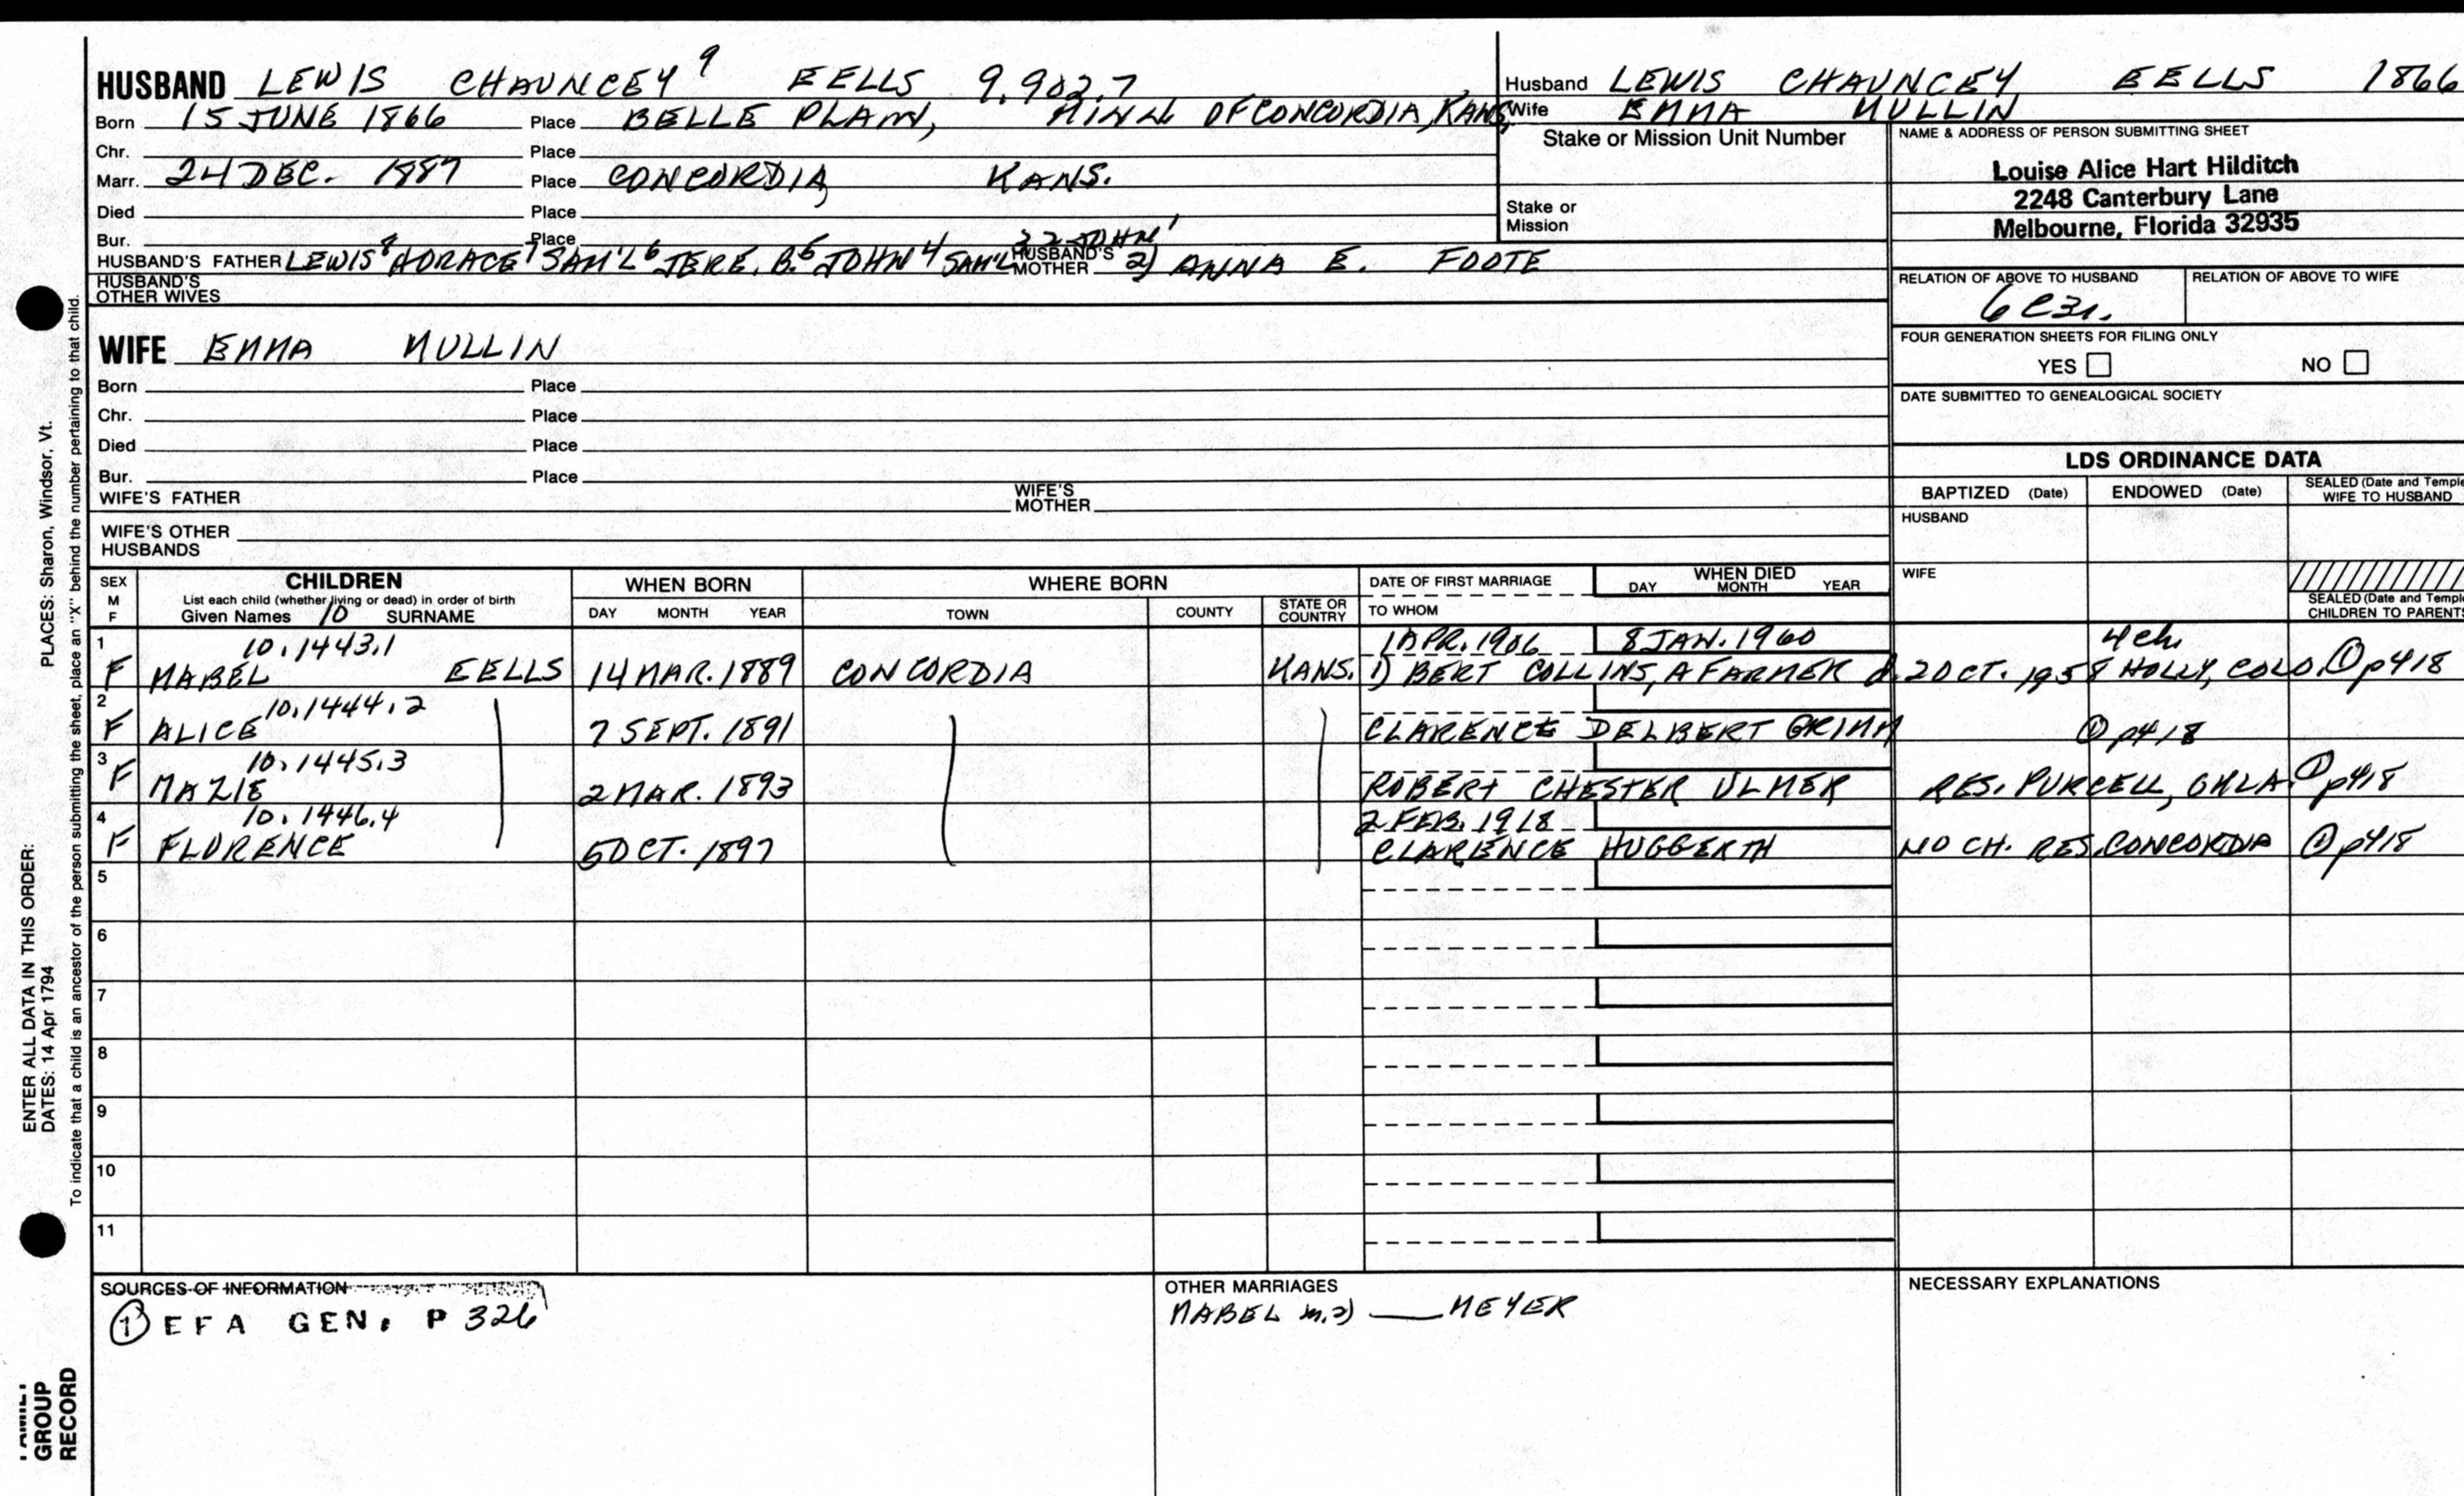 HUSBAND LEWIS CHAUNCEY⁹ EELLS 9.902.7
Born 15 JUNE 1866 Place BELLE PLAIN, MINN. OF CONCORDIA, KANS.
Chr. Place
Marr. 24 DEC. 1887 Place CONCORDIA KANS.
Died Place
Bur. Place
HUSBAND'S FATHER LEWIS⁸ HORACE⁷ SAM'L⁶ JERE. B.⁵ JOHN⁴ SAM'L 3 2 JOHN¹ HUSBAND'S MOTHER 2) ANNA E. FOOTE
HUSBAND'S OTHER WIVES
Husband LEWIS CHAUNCEY EELLS 1866
Wife EMMA MULLIN
Stake or Mission Unit Number
Stake or
Mission
NAME & ADDRESS OF PERSON SUBMITTING SHEET
Louise Alice Hart Hilditch
2248 Canterbury Lane
Melbourne, Florida 32935
RELATION OF ABOVE TO HUSBAND RELATION OF ABOVE TO WIFE
6C3r.
FOUR GENERATION SHEETS FOR FILING ONLY
YES NO
DATE SUBMITTED TO GENEALOGICAL SOCIETY
WIFE EMMA MULLIN
Born Place
Chr. Place
Died Place
Bur. Place
WIFE'S FATHER WIFE'S MOTHER
WIFE'S OTHER
HUSBANDS
LDS ORDINANCE DATA
BAPTIZED (Date) ENDOWED (Date) SEALED (Date and Temple
WIFE TO HUSBAND
HUSBAND
WIFE
SEALED (Date and Templ
CHILDREN TO PARENTS
SEX
M
F
CHILDREN
List each child (whether living or dead) in order of birth
Given Names 10 SURNAME
WHEN BORN
DAY MONTH YEAR
WHERE BORN
TOWN COUNTY STATE OR COUNTRY
DATE OF FIRST MARRIAGE
TO WHOM
WHEN DIED
DAY MONTH YEAR
1 10.1443.1 1 APR. 1906 8 JAN. 1960 4 ch.
F MABEL EELLS 14 MAR. 1889 CONCORDIA KANS. 1) BERT COLLINS, A FARMER d. 2 OCT. 1958 HOLLY, COLO. ① p418
2 10.1444.2
F ALICE 7 SEPT. 1891 CLARENCE DELBERT GRIMM ① p418
3 10.1445.3
F MAZIE 2 MAR. 1893 ROBERT CHESTER ULMER RES. PURCELL, OKLA. ① p418
4 10.1446.4 2 FEB. 1918
F FLORENCE 5 OCT. 1897 CLARENCE HUGGERTH NO CH. RES. CONCORDIA ① p418
5
6
7
8
9
10
11
SOURCES OF INFORMATION
① EFA GEN. P 326
OTHER MARRIAGES
MABEL m. 2) ___ MEYER
NECESSARY EXPLANATIONS
ENTER ALL DATA IN THIS ORDER:
DATES: 14 Apr 1794 PLACES: Sharon, Windsor, Vt.
To indicate that a child is an ancestor of the person submitting the sheet, place an "X" behind the number pertaining to that child.
GROUP
RECORD